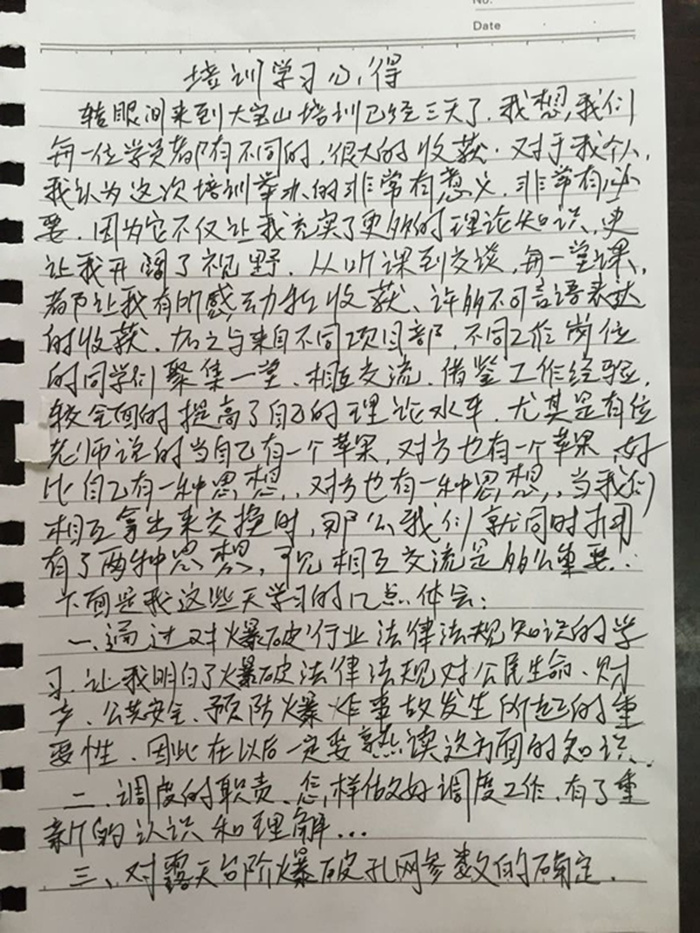 No.
Date
培训学习心得
转眼间来到大宝山培训已经三天了.我想,我们
每一位学员都有不同的,很大的收获.对于我个人,
我认为这次培训举办的非常有意义,非常有必
要.因为它不仅让我充实了更多的理论知识,更
让我开阔了视野.从听课到交谈,每一堂课,
都让我有所感动和收获、许多不可言语表达
的收获.加之与来自不同项目部,不同工作岗位
的同学们聚集一堂、相互交流.借鉴工作经验,
较全面的提高了自己的理论水平.尤其是有位
老师说的当自己有一个苹果,对方也有一个苹果,好
比自己有一种思想,,对方也有一种思想,,当我们
相互拿出来交换时,那么我们就同时拥
有了两种思想,可见相互交流是多么重要.
下面是我这些天学习的几点体会:
一.通过对爆破行业法律法规知识的学
习.让我明白了爆破法律法规对公民生命、财
产、公共安全、预防爆炸事故发生所起的重
要性.因此在以后一定要熟读这方面的知识.
二、调度的职责、怎样做好调度工作,有了重
新的认识和理解...
三、对露天台阶爆破孔网参数的确定.